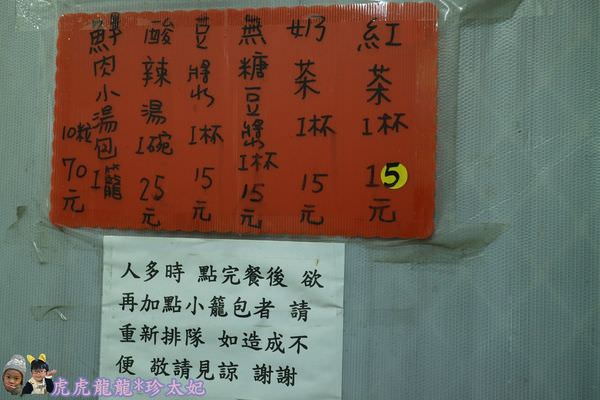 紅茶1杯 15元
奶茶1杯 15元
無糖豆漿1杯 15元
豆漿1杯 15元
酸辣湯1碗 25元
鮮肉小湯包1籠
10粒70元
人多時 點完餐後 欲
再加點小籠包者 請
重新排隊 如造成不
便 敬請見諒 謝謝
虎虎龍龍*珍太妃